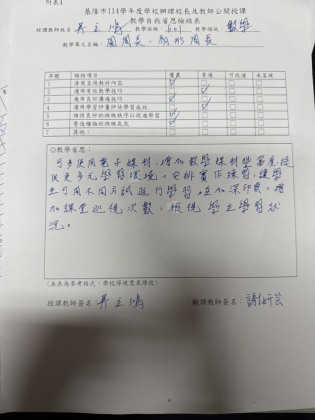 附表4
基隆市114學年度學校辦理校長及教師公開授課
教學自我省思檢核表
授課教師姓名： 教學班級： 教學領域：數學
教學單元名稱：圓周長、扇形周長
序號 檢核項目 優異 普通 可改進 未呈現
1 清楚呈現教材內容 ✓
2 運用有效教學技巧 ✓
3 應用良好溝通技巧 ✓
4 運用學習評量評估學習成效 ✓
5 維持良好的班級秩序以促進學習 ✓
6 營造積極的班級氣氛 ✓
7 其他
◎教學省思：
可多使用電子媒材，增加教學媒材豐富度，提
供更多元學習環境。安排實作練習，讓學
生可用不同方式進行學習，並加深印象。增
加課堂巡視次數，檢視學生學習狀
況。
(本表為參考格式，學校得視需求修改)
授課教師簽名： 觀課教師簽名：